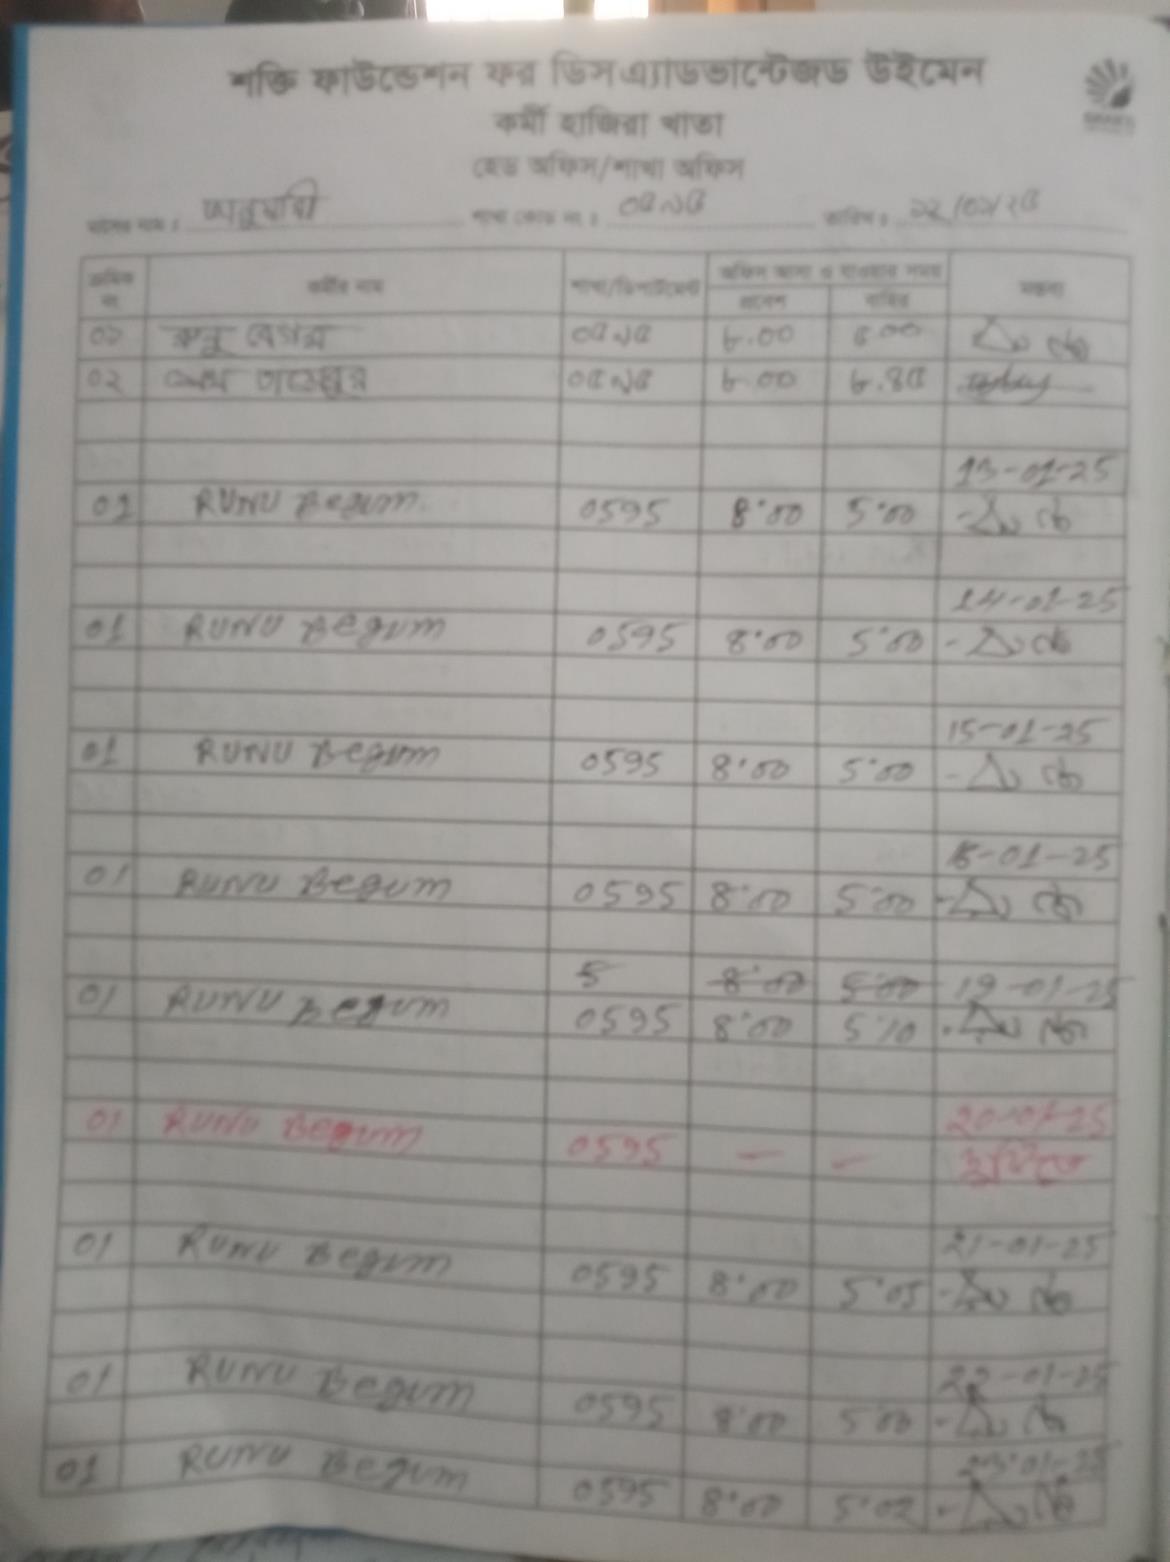 শক্তি ফাউন্ডেশন ফর ডিসএ্যাডভান্টেজড উইমেন
কর্মী হাজিরা খাতা
হেড অফিস/শাখা অফিস
মাসের নাম : জানুয়ারী শাখা কোড নং : ০৫৯৫ তারিখ : ১২/০১/২৫
ক্রমিক নং কর্মীর নাম শাখা/ডিপার্টমেন্ট অফিস আসা ও যাওয়ার সময় মন্তব্য
প্রবেশ বাহির
০১ রুনু বেগম ০৫৯৫ ৮.০০ ৫.০০
০২ ০৫৯৫ ৮.০০ ৮.৪৫
13-01-25
01 RUNU Begum 0595 8:00 5:00
14-01-25
01 RUNU Begum 0595 8:00 5:00
15-01-25
01 RUNU Begum 0595 8:00 5:00
-01-25
01 RUNU Begum 0595 8:00 5:00
5 8:00 5:00 19-01-25
01 RUNU Begum 0595 8:00 5:10
20-01-25
01 RUNU Begum 0595 - - ছুটিতে
21-01-25
01 RUNU Begum 0595 8:00 5:05
22-01-25
01 RUNU Begum 0595 8:00 5:00
23-01-25
01 RUNU Begum 0595 8:00 5:02